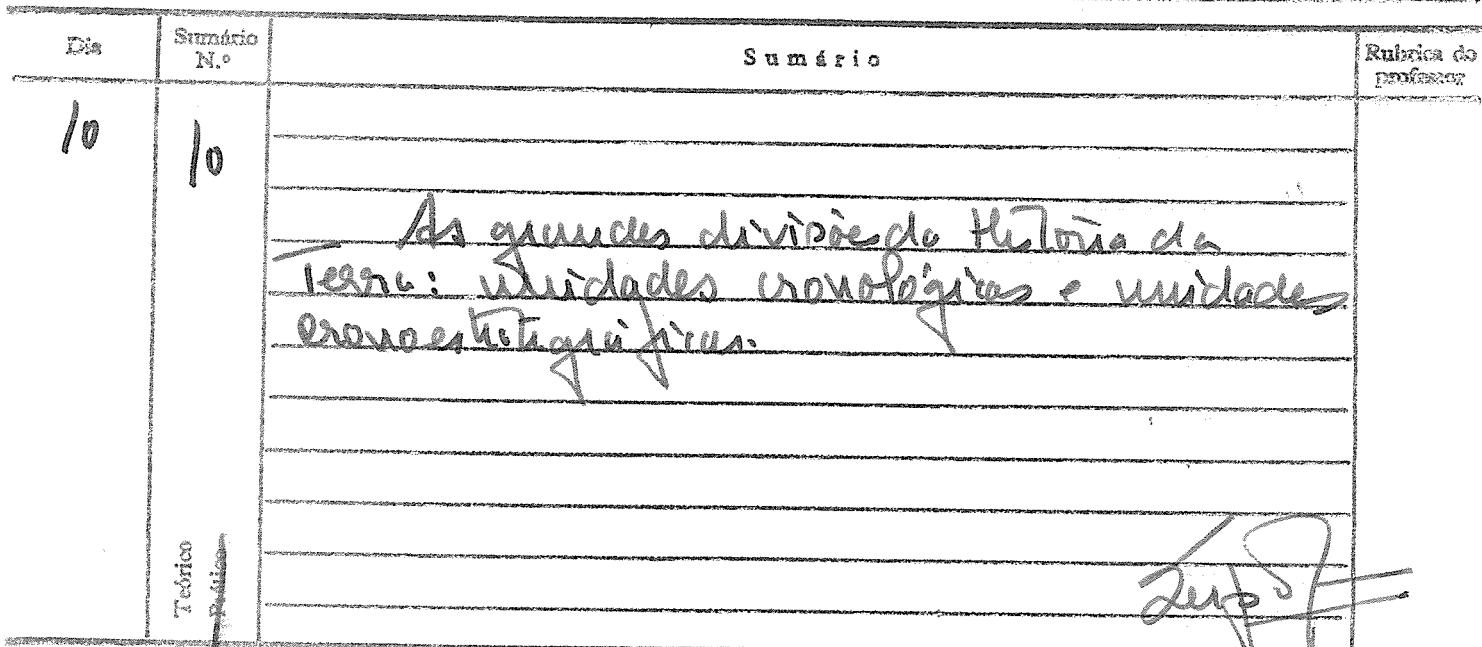 Dia
Sumário N.º
Sumário
Rubrica do professor
10
10
As grandes divisões da História da
Terra: unidades cronológicas e unidades
cronoestratigráficas.
Teórico
Prático